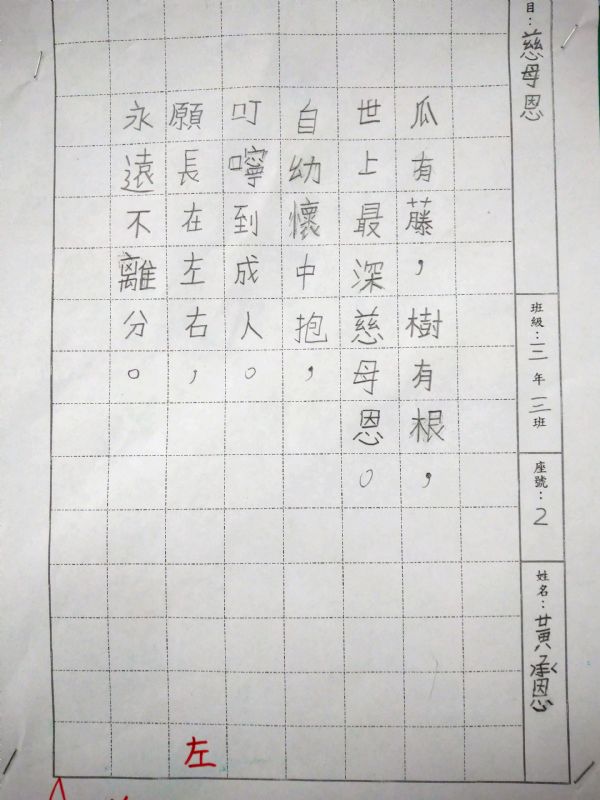 目：慈母恩
班級：三年三班
座號：2
姓名：黃承恩
瓜有藤，樹有根，
世上最深慈母恩。
自幼懷中抱，
叮嚀到成人。
願長在左右，
永遠不離分。
左